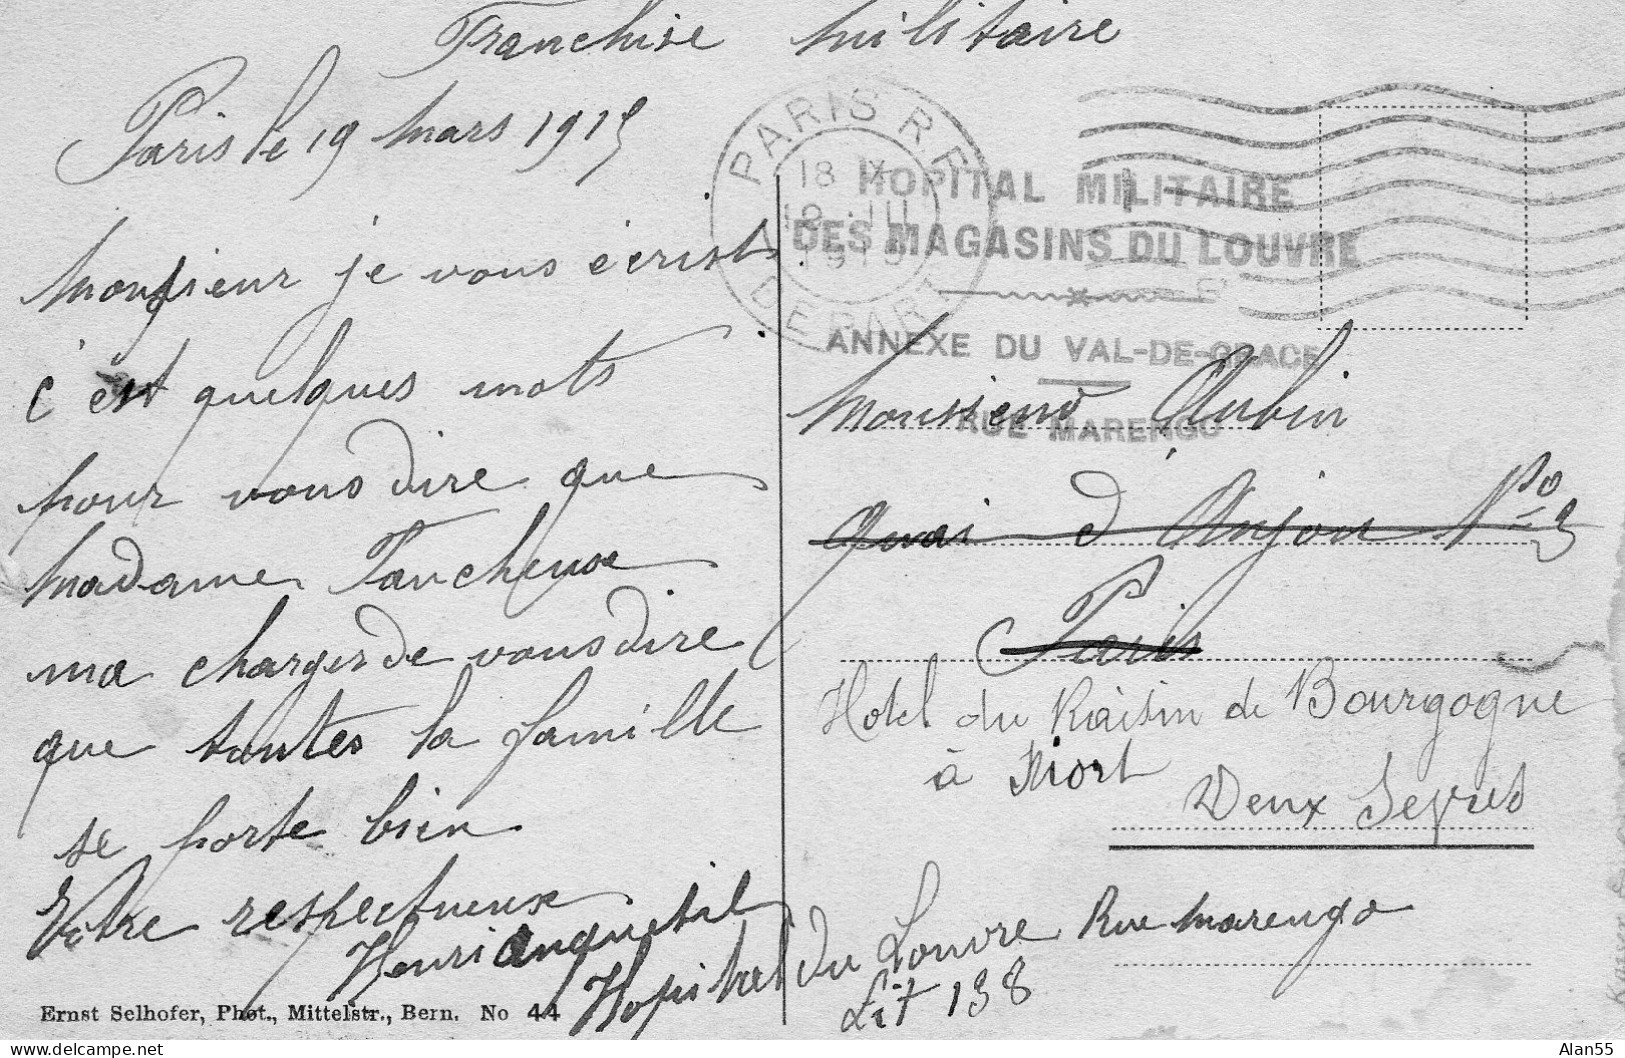 Franchise militaire
Paris le 19 mars 1915
Monsieur je vous écrist
c'est quelques mots
pour vous dire que
Madame Fancheux
ma charger de vous dire
que toutes la famille
se porte bien
Votre respectueux
Henri Anquetil
Hopital du Louvre Rue Marengo
Lit 138
PARIS R.P.
18
DEPART
HOPITAL MILITAIRE
DES MAGASINS DU LOUVRE
ANNEXE DU VAL-DE-GRACE
RUE MARENGO
Monsieur Aubin
Quai d'Anjou No
Paris
Hotel du Raisin de Bourgogne
à Niort
Deux Sevres
Ernst Selhofer, Phot., Mittelstr., Bern. No 44
Alan55